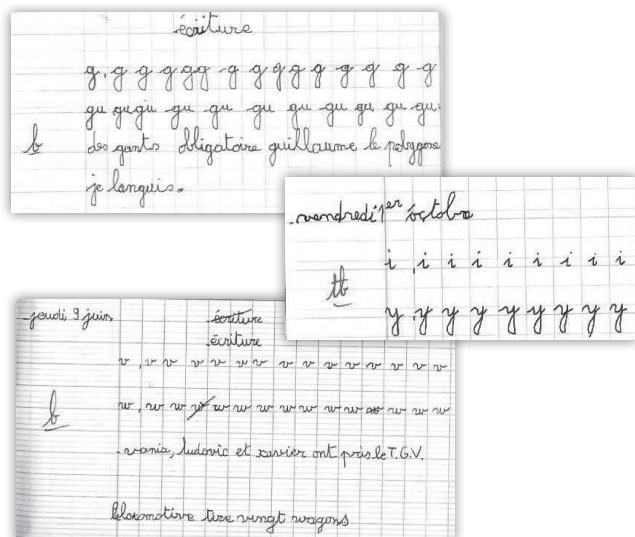 écriture
g, g g g g g g g g g g g g g g
gu gu gu gu gu gu gu gu gu gu gu
b des gants obligatoire guillaume le polygone
je languis.
vendredi 1er octobre
i, i i i i i i i i
tb
y, y y y y y y y y
jeudi 9 juin écriture
écriture
v, v v v v v v v v v v v v v
b w, w w w w w w w w w w w w w w
vania, ludovic et xavier ont pris le T.G.V.
locomotive tire vingt wagons